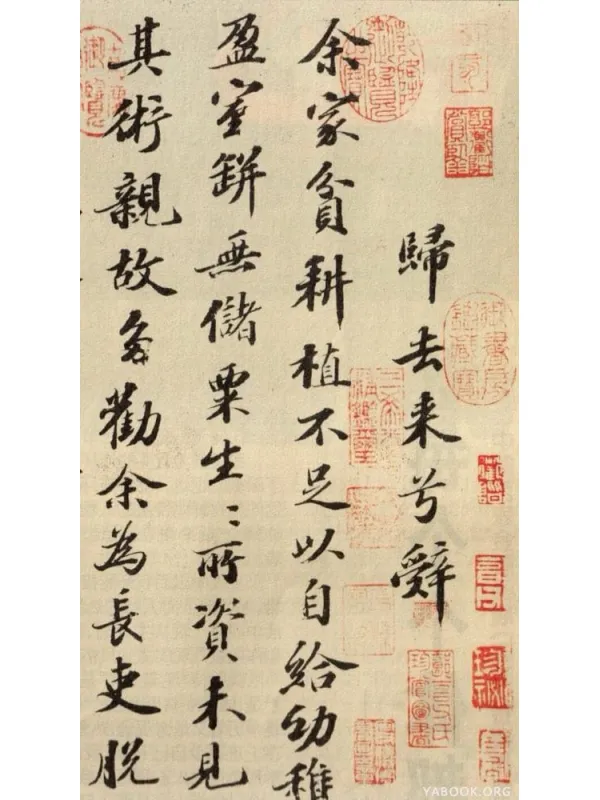 歸去来兮辭
余家貧耕植不足以自給幼稚
盈室缾無儲粟生〻所資未見
其術親故多勸余為長吏脱
YABOOK.ORG